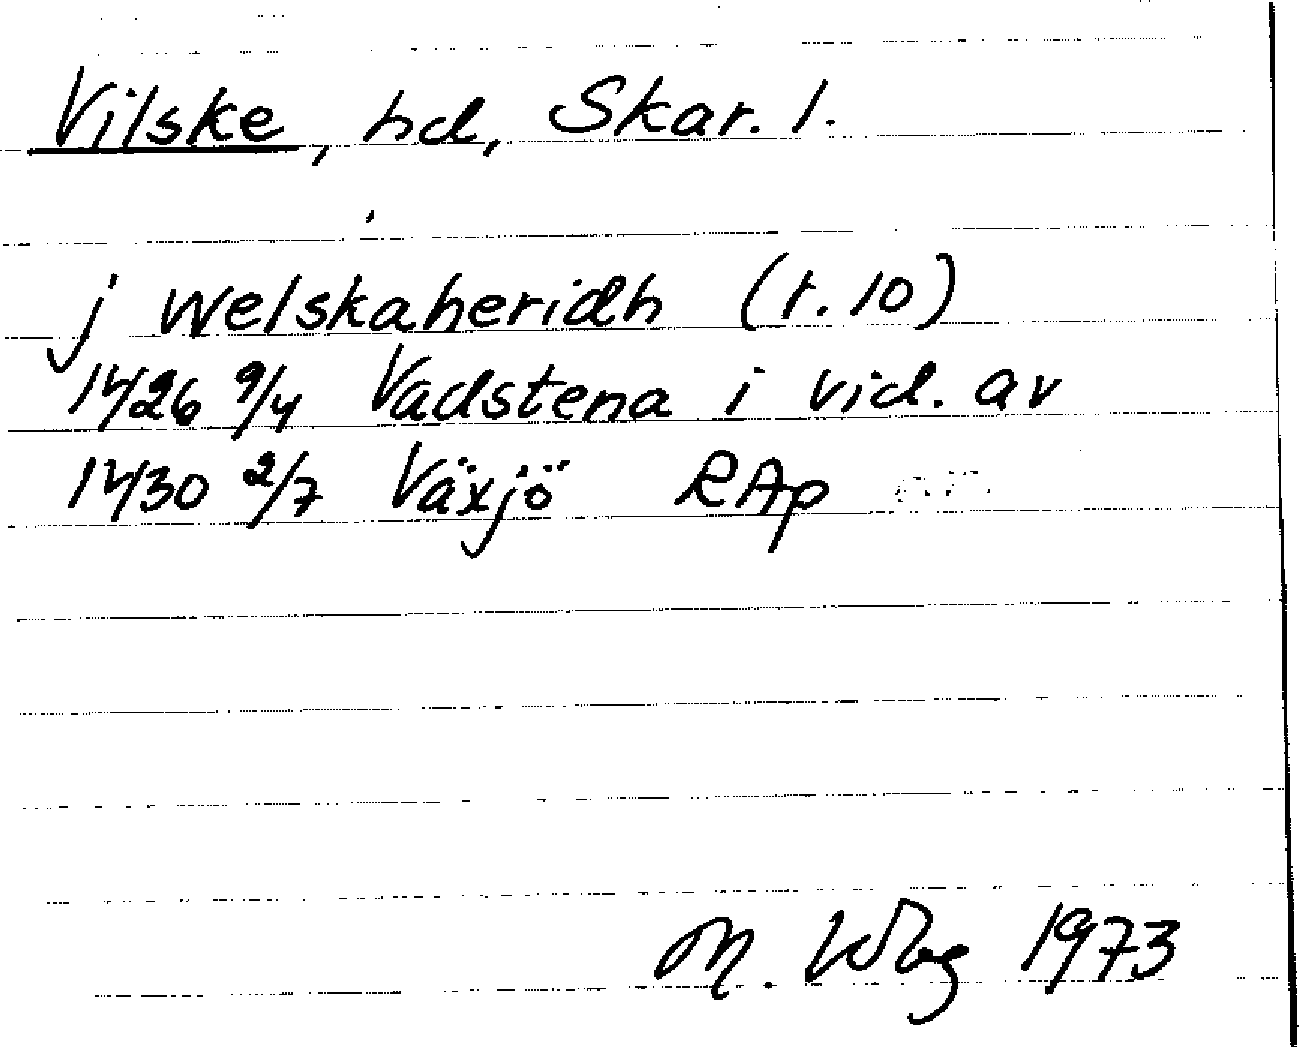 Vilske, hd, Skar. l.
j welskaheridh (r. 10)
1426 9/4 Vadstena i vid. av
1430 2/7 Växjö RAp
M. Wbg 1973